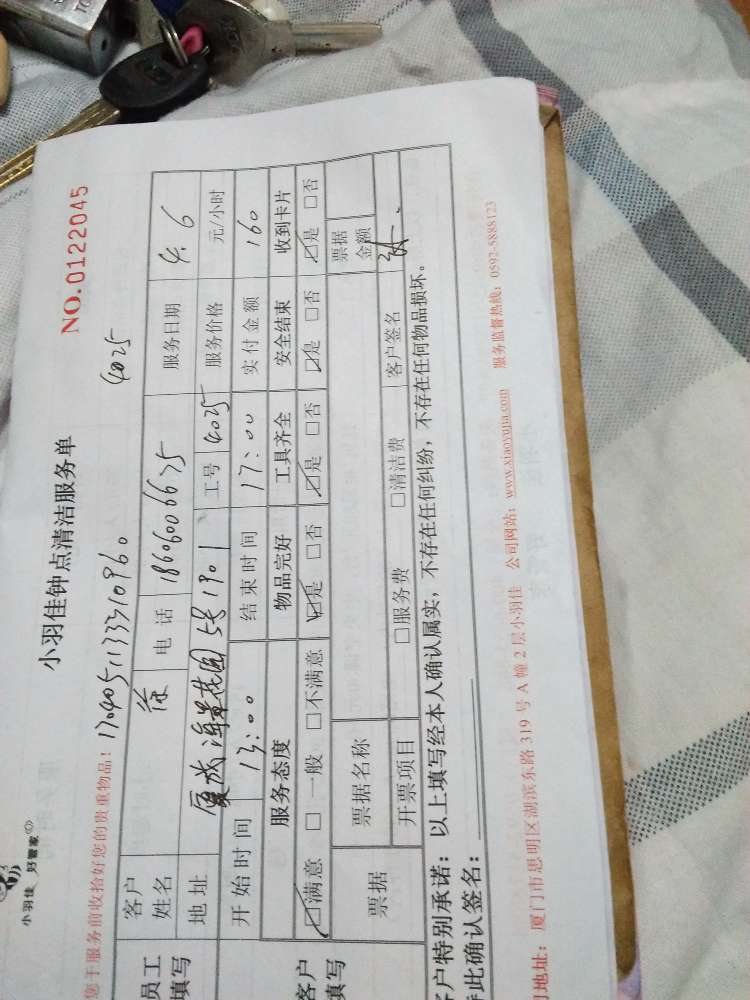 小羽佳 好管家
小羽佳钟点清洁服务单
NO.0122045
您于服务前收拾好您的贵重物品: 1704051133310960 4025
员工
填写
客户
姓名 徐 电话 18606006675 服务日期 4.6
地址 厦成海景花园5号1901 工号 4025 服务价格 元/小时
开始时间 13:00 结束时间 17:00 实付金额 160
客户
填写
服务态度 物品完好 工具齐全 安全结束 收到卡片
☑满意 □一般 □不满意 ☑是 □否 ☑是 □否 ☑是 □否 ☑是 □否
票据 票据名称 票据
金额
开票项目 □服务费 □清洁费 客户签名
客户特别承诺: 以上填写经本人确认属实, 不存在任何纠纷, 不存在任何物品损坏。
特此确认签名:
司地址: 厦门市思明区湖滨东路 319 号 A 幢 2 层小羽佳 公司网站: www.xiaoyujia.com 服务监督热线: 0592-5888123